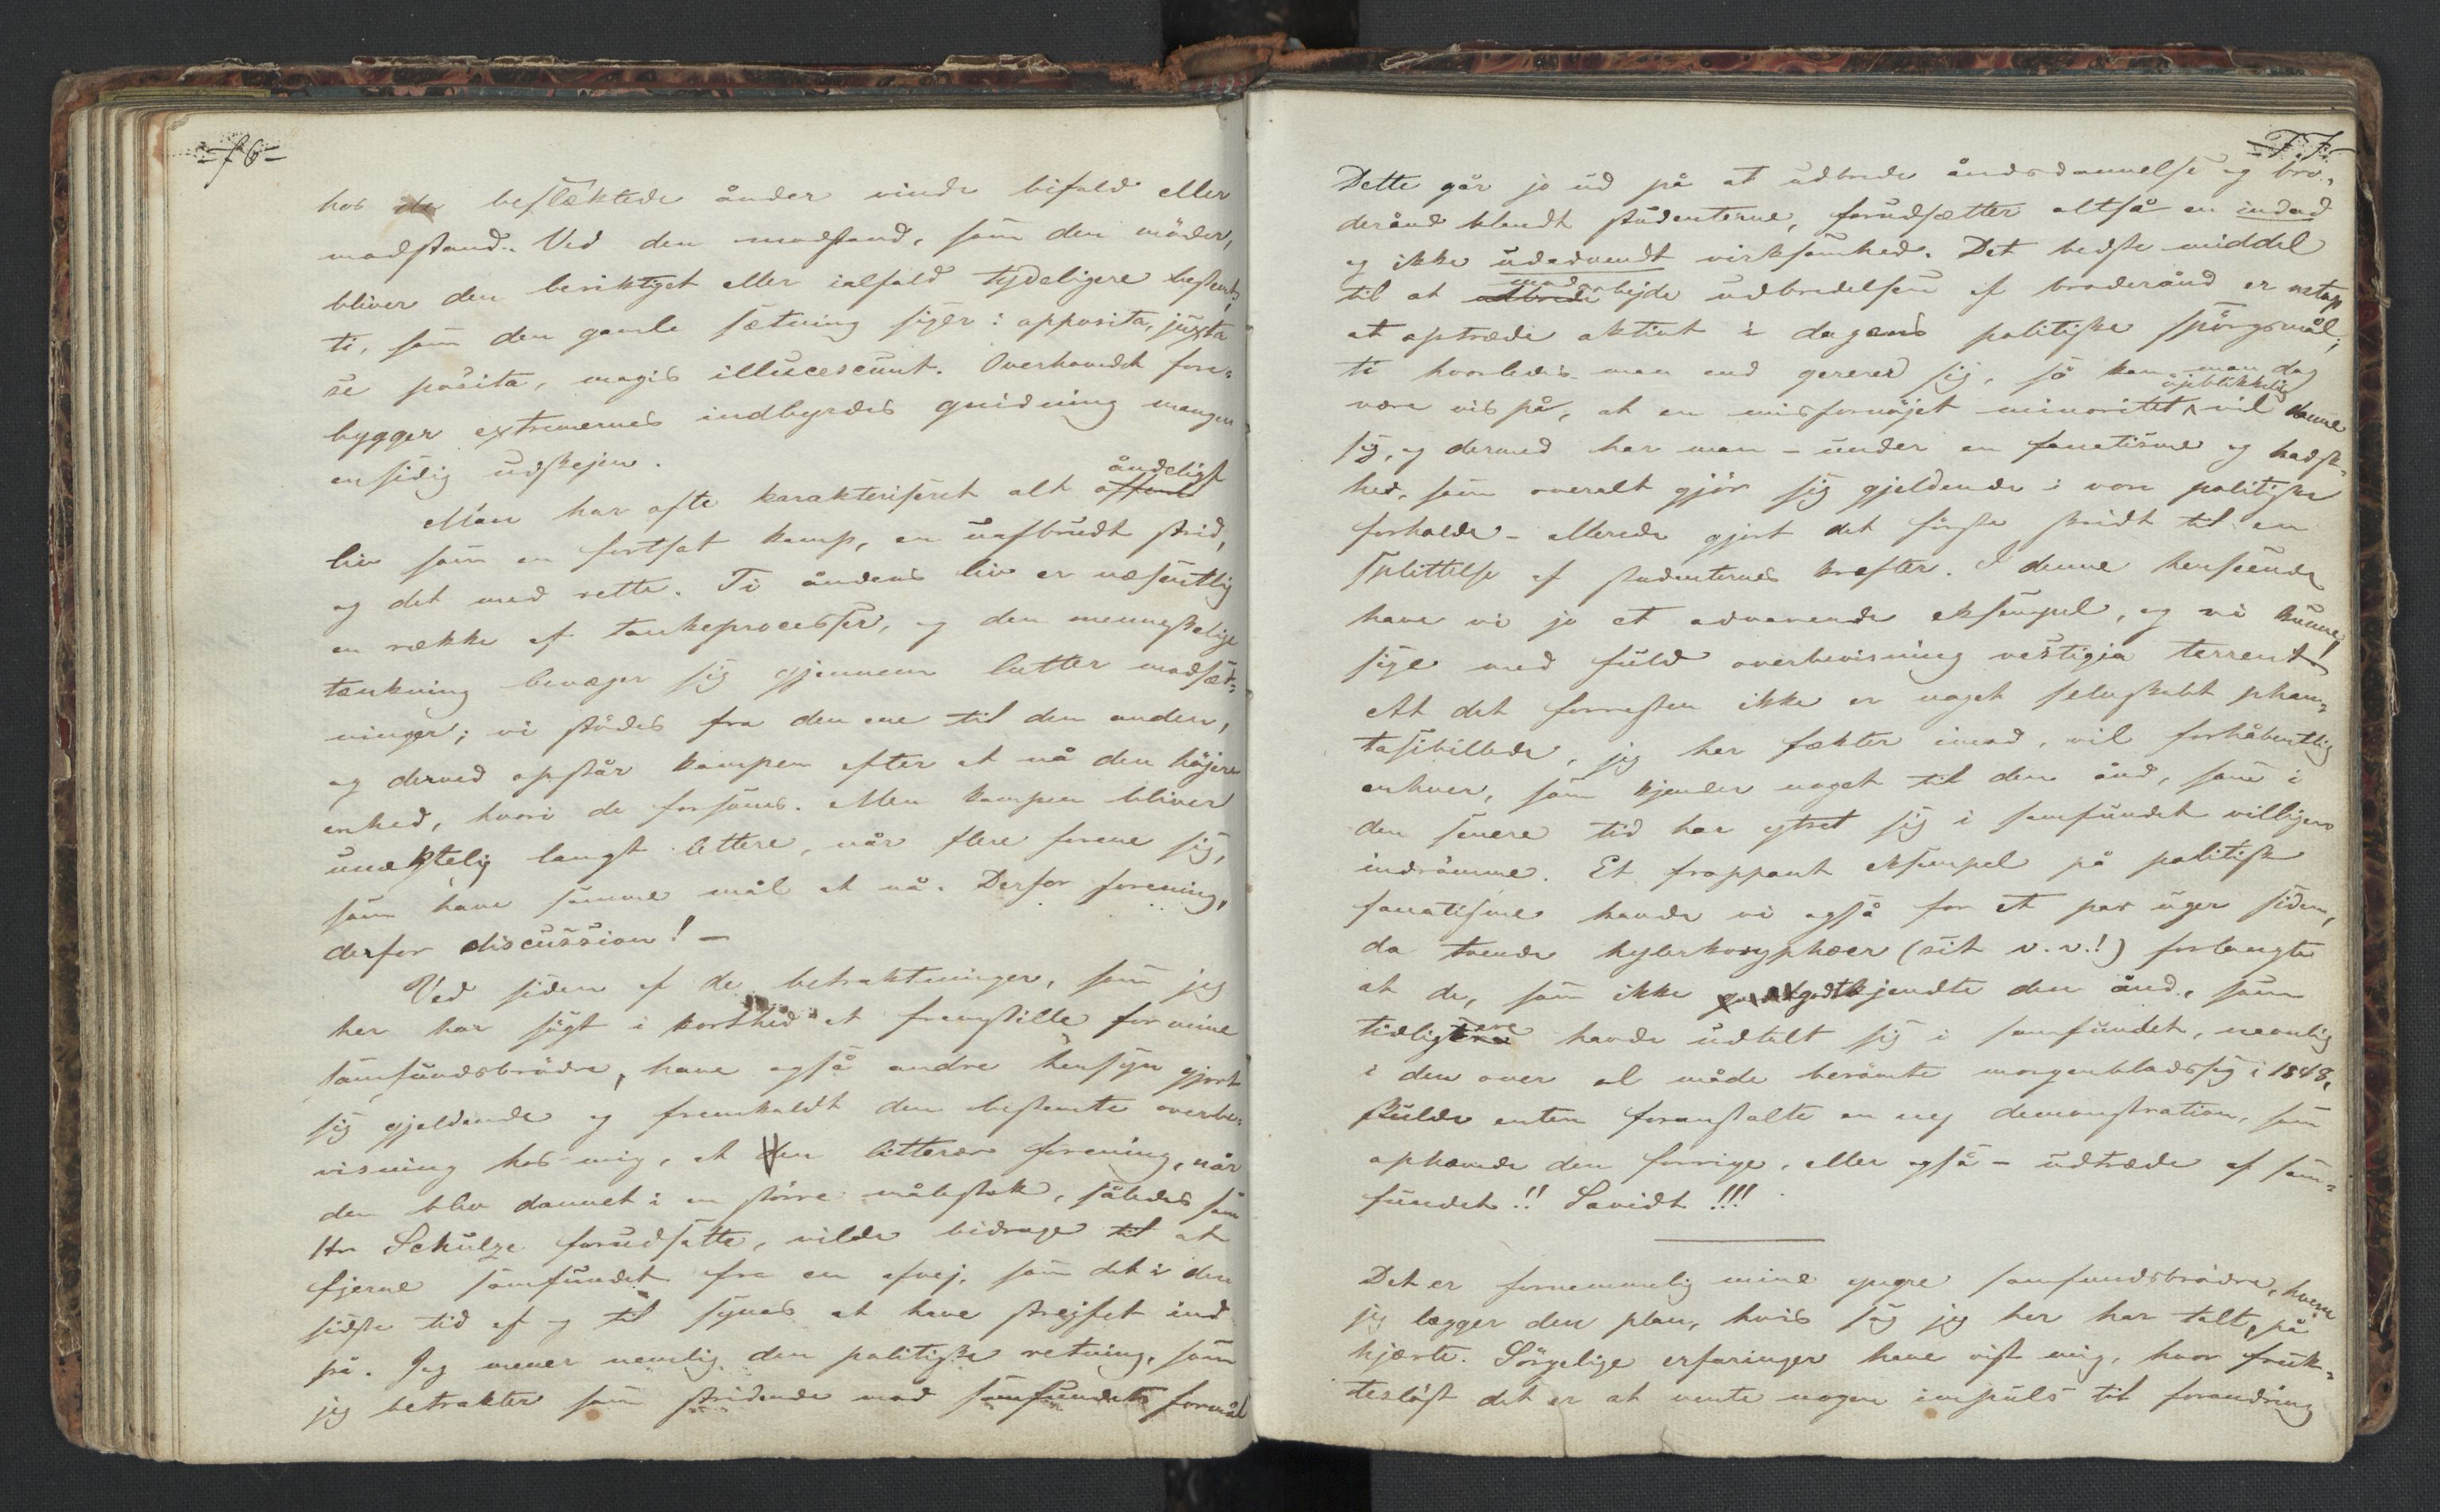 -76-
hos de beslæktede ånder vinde bifald eller
modstand. Ved den modstand, som den möder,
bliver den beriktiget eller ialfald tydeligere bestemt,
ti, som den gamle sætning siger: opposita, juxta
se posita, magis illucescunt. Overhovedet fore-
bygger extremernes indbyrdes gnidning mangen
ensidig udskejen.
Man har ofte karakteriseret alt offent åndeligt
liv som en fortsat kamp, en uafbrudt strid,
og det med rette. Ti åndens liv er væsentlig
en række af tankeprocesser, og den menneskelige
tænkning bevæger sig gjennem lutter modsæt-
ninger; vi stödes fra den ene til den anden,
og derved opstår kampen efter at nå den höjere
enhed, hvori de forsones. Men kampen bliver
unægtelig langt lettere, når flere forene sig,
som have samme mål at nå. Derfor forening,
derfor discussion! –
Ved siden af de betraktninger, som jeg
her har sögt i korthed at fremstille for mine
samfundsbrödre, have også andre hensyn gjort
sig gjeldende og fremkaldt den bestemte overbe-
visning hos mig, at den litterær forening, når
den blev dannet i en större målestok, således som
Hr Schulze forudsatte, vilde bidrage til at
fjerne samfundet fra en afvej, som det i den
sidste tid af og til synes at have strejfet ind
på. Jeg mener nemlig den politiske retning, som
jeg betrakter som stridende mod samfundets formål
-77-
Dette går jo ud på at udbrede åndsdannelse og bro-
derånd blandt studenterne, forudsætter altså en indad
og ikke udadvendt virksomhed. Det bedste middel
til at udbrede modarbejde udbredelsen af broderånd er netop
at optræde aktivt i dagens politiske spörgsmål;
ti hvorledes man end gererer sig, så kan man dog
være vis på, at en misfornöjet minoritet öjeblikkelig vil danne
sig, og dermed har man – under en fanatisme og hadsk-
hed, som overalt gjör sig gjeldende i vore politiske
forholde – allerede gjort det förste skridt til en
splittelse af studenternes kræfter. I denne henseende
have vi jo et advarende eksempel, og vi kunne
sige med fuld overbevisning vestigia terrent!
At det forresten ikke er noget selvskabt phan-
tasibillede, jeg her fækter imod, vil forhåbentlig
enhver, som kjender noget til den ånd, som i
den senere tid har ytret sig i samfundet villigen
indrömme. Et frappant eksempel på politisk
fanatisme havde vi også for et par uger siden,
da tvende hylerkoryphæer (sit v.v.!) forlangte
at de, som ikke godtkjendte den ånd, som
tidligere havde udtalt sig i samfundet, navnlig
i den over al måde berömte morgenbladssag i 1848,
skulde enten foranstalte en ny demonstration, som
ophævede den forrige, eller også – udtræde af sam-
fundet!! Savidt!!!
Det er fornemmelig mine yngre samfundsbrödre, hvem
jeg lægger den plan, hvis sag jeg her har talt, på
hjærte. Sörgelige erfaringer have vist mig, hvor fruk-
teslöst det er at vente nogen impuls til forandring